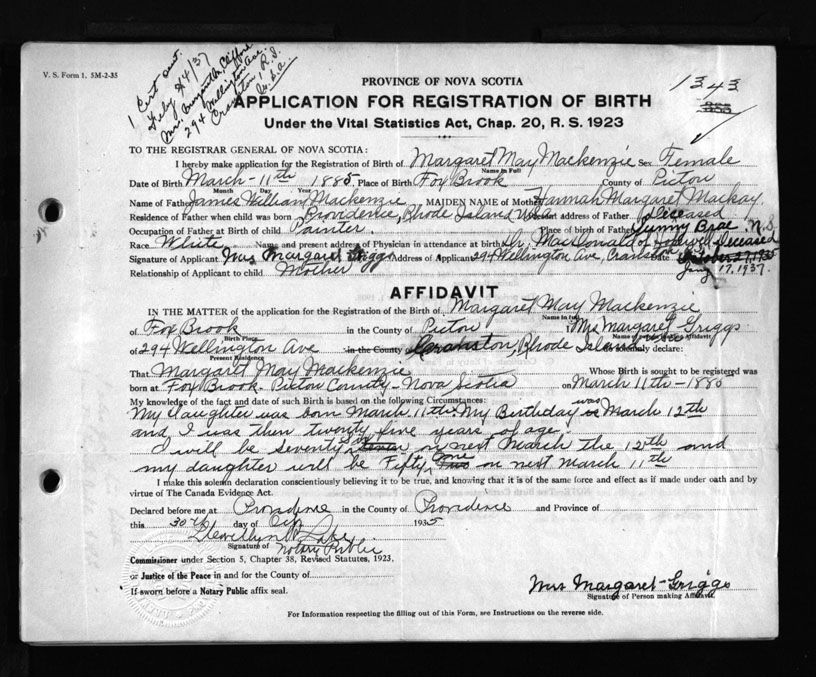 V. S. Form 1. 5M-2-35
1 Cert sent.
Feby 4/37
Mrs. Margaret M. Clifford
294 Wellington Ave
Cranston, R.I.
U.S.A.
1343
PROVINCE OF NOVA SCOTIA
APPLICATION FOR REGISTRATION OF BIRTH
Under the Vital Statistics Act, Chap. 20, R. S. 1923
TO THE REGISTRAR GENERAL OF NOVA SCOTIA:
I hereby make application for the Registration of Birth of Margaret May Mackenzie Sex Female
Name in Full
Date of Birth March - 11th 1885, Place of Birth Fox Brook County of Pictou
Month Day Year
Name of Father James William Mackenzie MAIDEN NAME of Mother Hannah Margaret Mackay.
Residence of Father when child was born Providence, Rhode Island Present address of Father Deceased
Occupation of Father at Birth of Child Painter. Place of birth of Father Sunny Brae N.S.
Race White Name and present address of Physician in attendance at birth Dr. MacDonald of deceased
Signature of Applicant Mrs Margaret Griggs Address of Applicant 294 Wellington Ave, Cranston Date October 27, 1935
Relationship of Applicant to child Mother Jany 17. 1937.
AFFIDAVIT
IN THE MATTER of the application for the Registration of Birth of Margaret May Mackenzie
Name in full
of Fox Brook in the County of Pictou I, Mrs Margaret Griggs
Birth Place Name of Person making Affidavit
of 294 Wellington Ave in the County of Cranston, Rhode Island solemnly declare:
Present Residence
That Margaret May Mackenzie Whose Birth is sought to be registered was
born at Fox Brook - Pictou County - Nova Scotia on March 11th - 1886
My knowledge of the fact and date of such Birth is based on the following Circumstances:
My daughter was born March 11th. My Birthday is was March 12th
and I was then twenty five years of age.
I will be Seventy Seven on next March the 12th and
my daughter will be Fifty Two One on next March 11th
I make this solemn declaration conscientiously believing it to be true, and knowing that it is of the same force and effect as if made under oath and by
virtue of The Canada Evidence Act.
Declared before me at Providence in the County of Providence and Province of
this 30th day of 1935
Llewellyn
Signature of Notary Public
Commissioner under Section 5, Chapter 38, Revised Statutes, 1923.
or Justice of the Peace in and for the County of
If sworn before a Notary Public affix seal.
Mrs Margaret Griggs
Signature of Person making Affidavit.
For Information respecting the filling out of this Form, see Instructions on the reverse side.